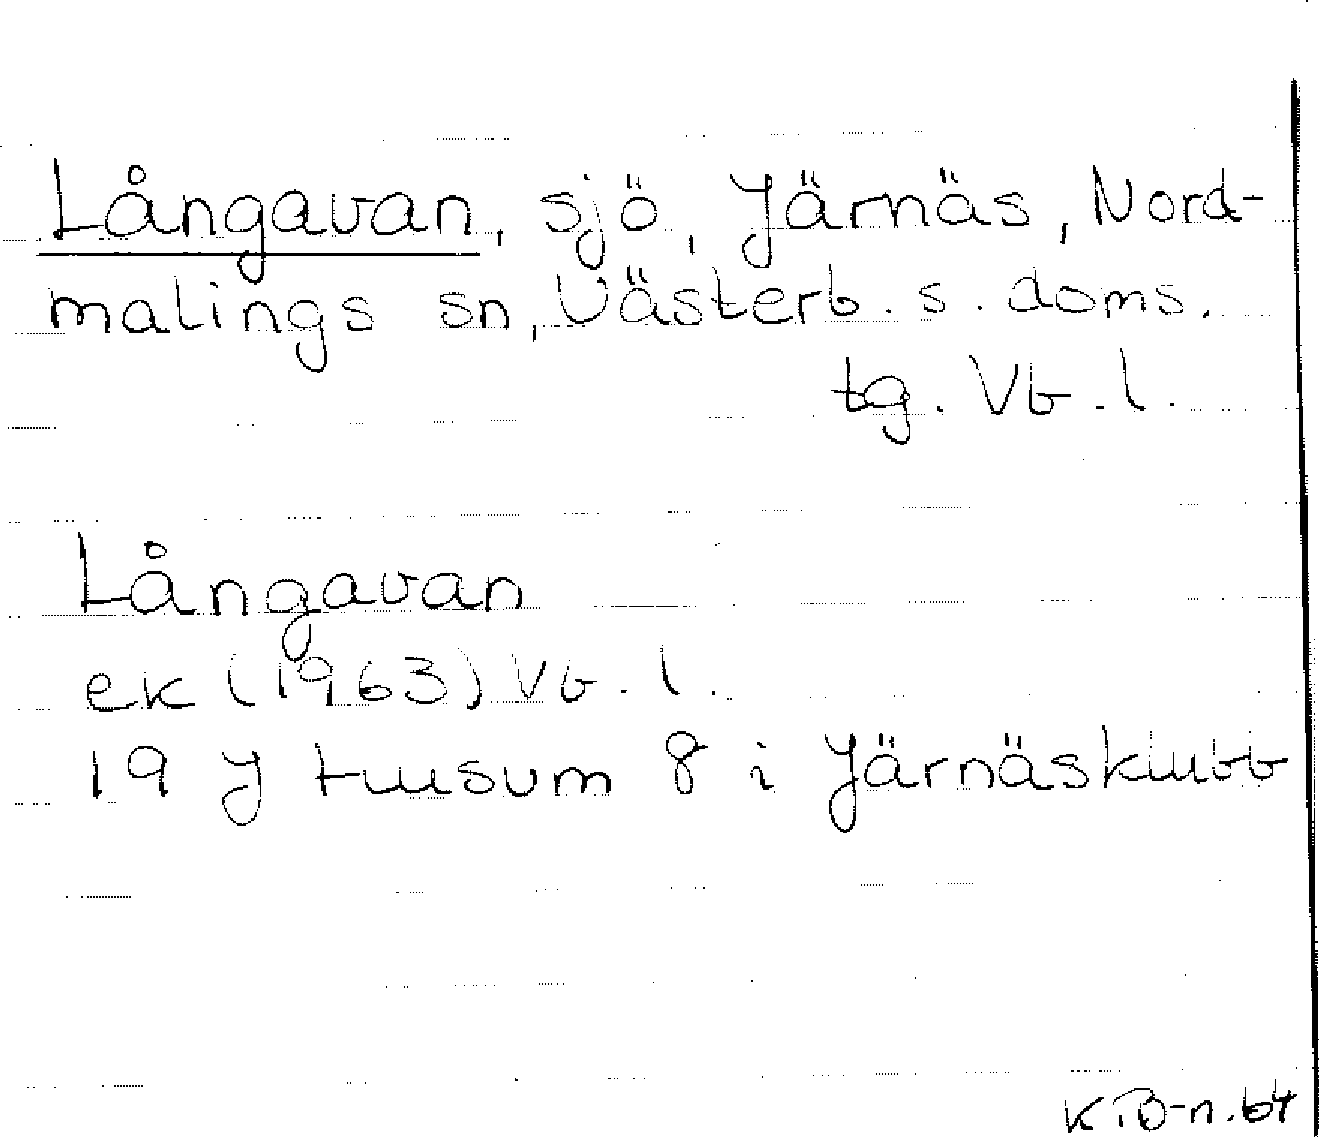 Långavan, sjö, Järnäs, Nord-
malings sn, Västerb. s. doms.
tg. Vb. l.
Långavan
ek (1963) Vb. l.
19 J Husum 8 i Järnäsklubb
K.B-n. 64